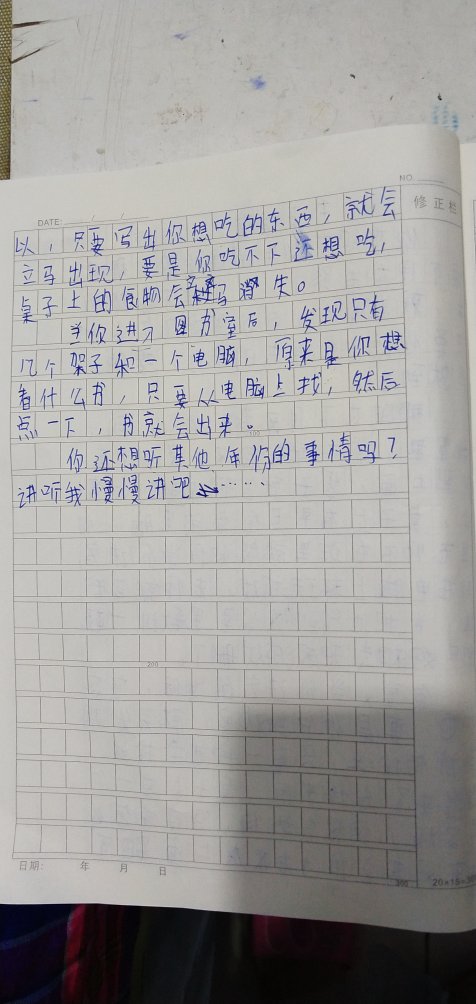 NO.
DATE: / /
修正栏
以，只要写出你想吃的东西，就会
立马出现，要是你吃不下还想吃，
桌子上的食物会立马消失。
当你进了图书室后，发现只有
几个架子和一个电脑，原来是你想
看什么书，只要从电脑上找，然后
点一下，书就会出来。
你还想听其他年份的事情吗？
讲听我慢慢讲吧……
100
200
日期： 年 月 日
300
20×15=300